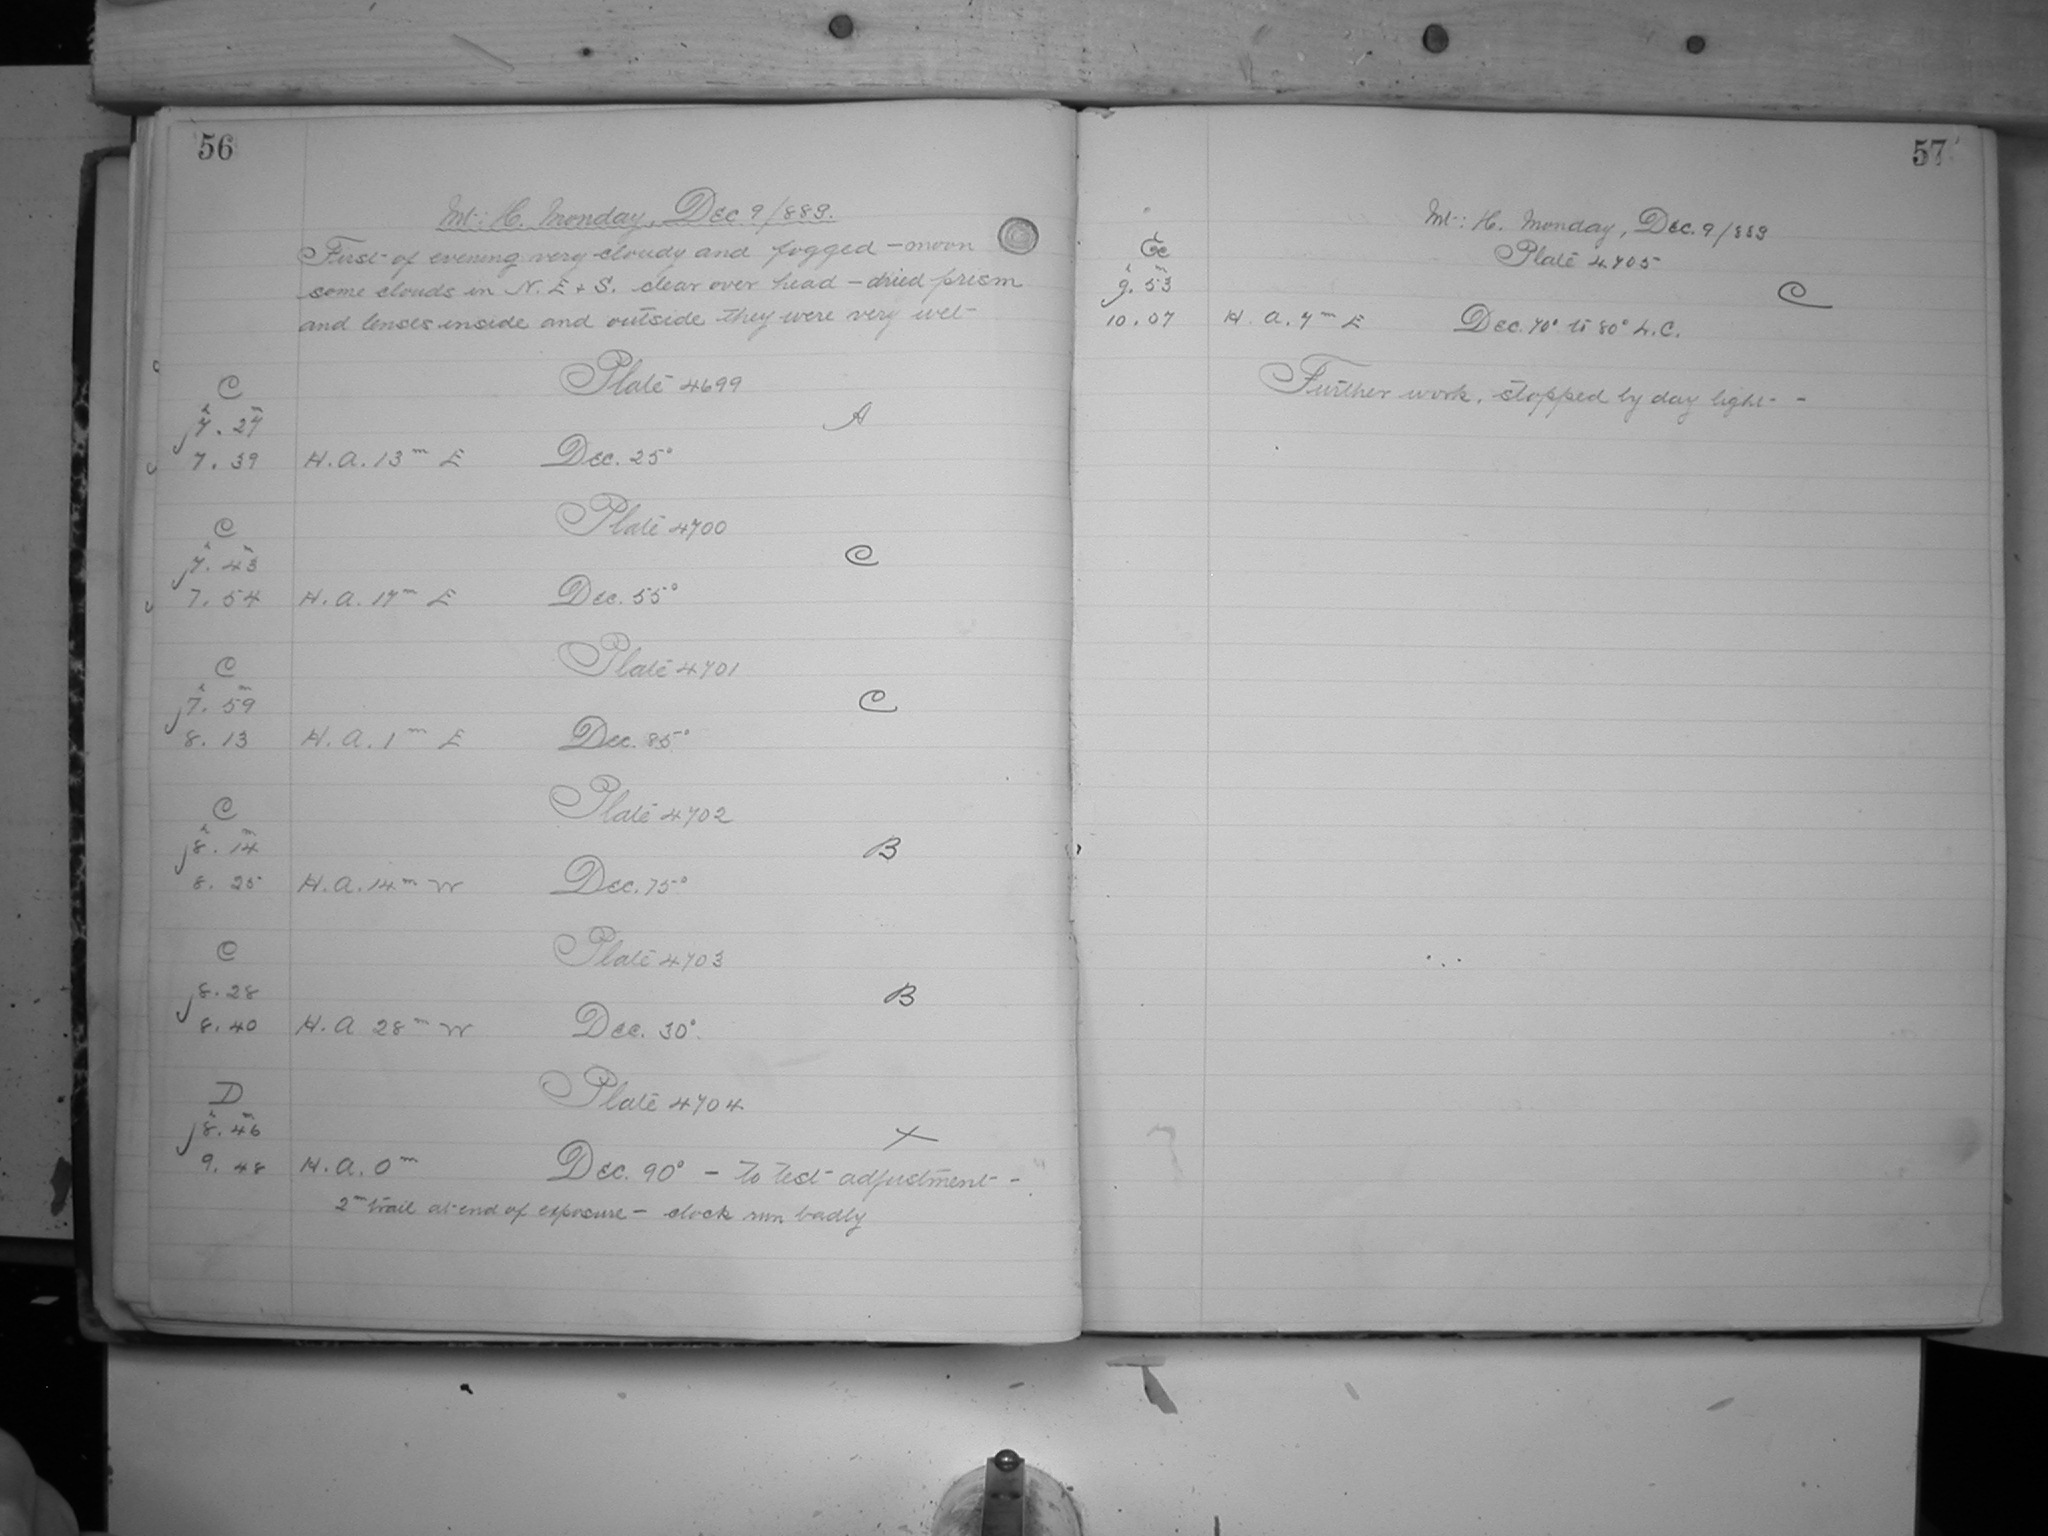 56
Mt: H. Monday, Dec. 9/889.
First of evening very cloudy and fogged – moon
some clouds in N. E + S. clear over head – dried prism
and lenses inside and outside they were very wet –
C
Plate 4699
h m
j7. 27
A
7. 39 H. A. 13m E Dec. 25°
C
Plate 4700
h m
j7. 43
C
7. 54 H. A. 17m E Dec. 55°
C
Plate 4701
h m
j7. 59
C
8. 13 H. A. 1m E Dec. 85°
C
Plate 4702
h m
j8. 14
B
8. 25 H. A. 14m W Dec. 75°
C
Plate 4703
j8. 28
B
8. 40 H. A 28m W Dec. 30°.
D
Plate 4704
h m
j8. 46
X
9. 48 H. A. 0m Dec. 90° – to test adjustment –
2m trail at end of exposure – clock run badly
57
Mt: H. Monday, Dec. 9/889
Plate 4705
h m
9. 53
C
10. 07 H. A. 7m E Dec. 70° to 80° L.C.
Further work, stopped by day light – –